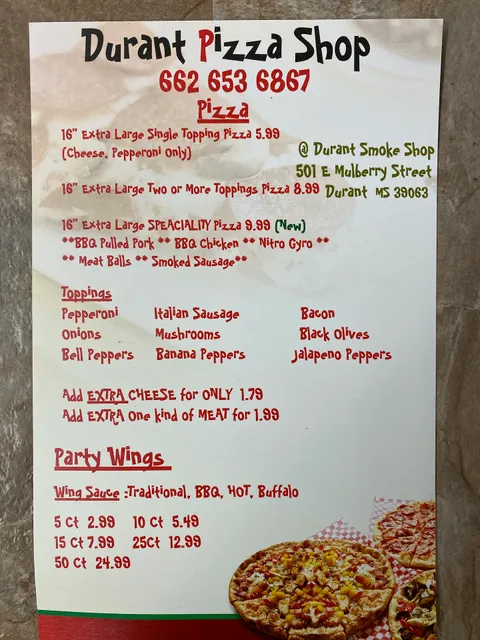 Durant Pizza Shop
662 653 6867
Pizza
16" Extra Large Single Topping Pizza 5.99
(Cheese, Pepperoni Only)
@ Durant Smoke Shop
501 E Mulberry Street
Durant MS 39063
16" Extra Large Two or More Toppings Pizza 8.99
16" Extra Large SPEACIALITY Pizza 9.99 (New)
**BBQ Pulled Pork ** BBQ Chicken ** Nitro Gyro **
** Meat Balls ** Smoked Sausage**
Toppings
Pepperoni Italian Sausage Bacon
Onions Mushrooms Black Olives
Bell Peppers Banana Peppers Jalapeno Peppers
Add EXTRA CHEESE for ONLY 1.79
Add EXTRA One kind of MEAT for 1.99
Party Wings
Wing Sauce :Traditional, BBQ, HOT, Buffalo
5 Ct 2.99 10 Ct 5.49
15 Ct 7.99 25Ct 12.99
50 Ct 24.99